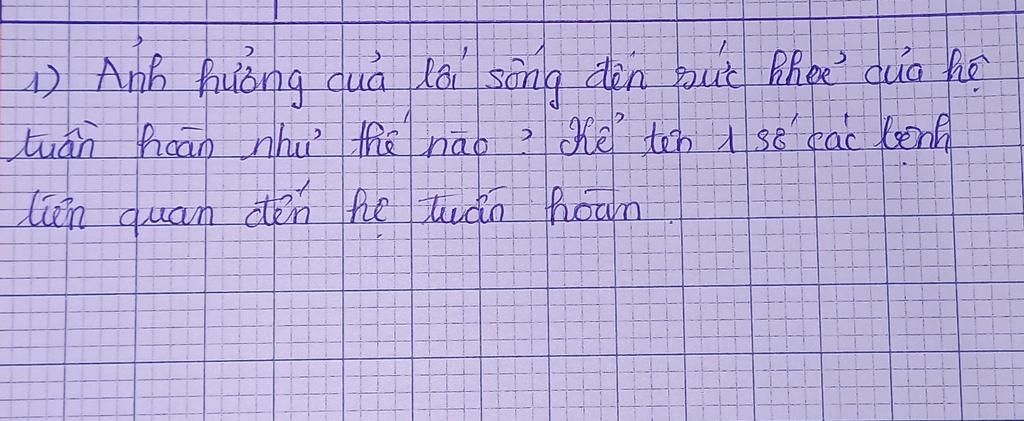 1) Ảnh hưởng của lối sống đến sức khoẻ của hệ
tuần hoàn như thế nào ? Kể tên 1 số các bệnh
liên quan đến hệ tuần hoàn.